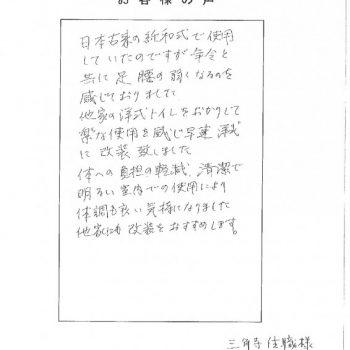 お客様の声
日本古来の純和式で使用
していたのですが年令と
共に足腰の弱くなるのを
感じておりました
他家の洋式トイレをおかりして
楽な使用を感じ早速洋式
に改装致しました
体への負担の軽減、清潔で
明るい室内での使用により
体調も良い気持になりました
他家にも改装をおすすめします。
三角寺 住職様